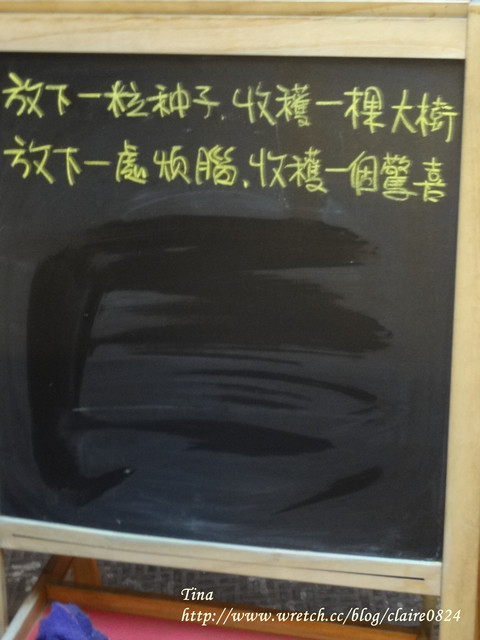 放下一粒种子,收穫一棵大樹
放下一處煩腦,收穫一個驚喜
Tina
http://www.wretch.cc/blog/claire0824